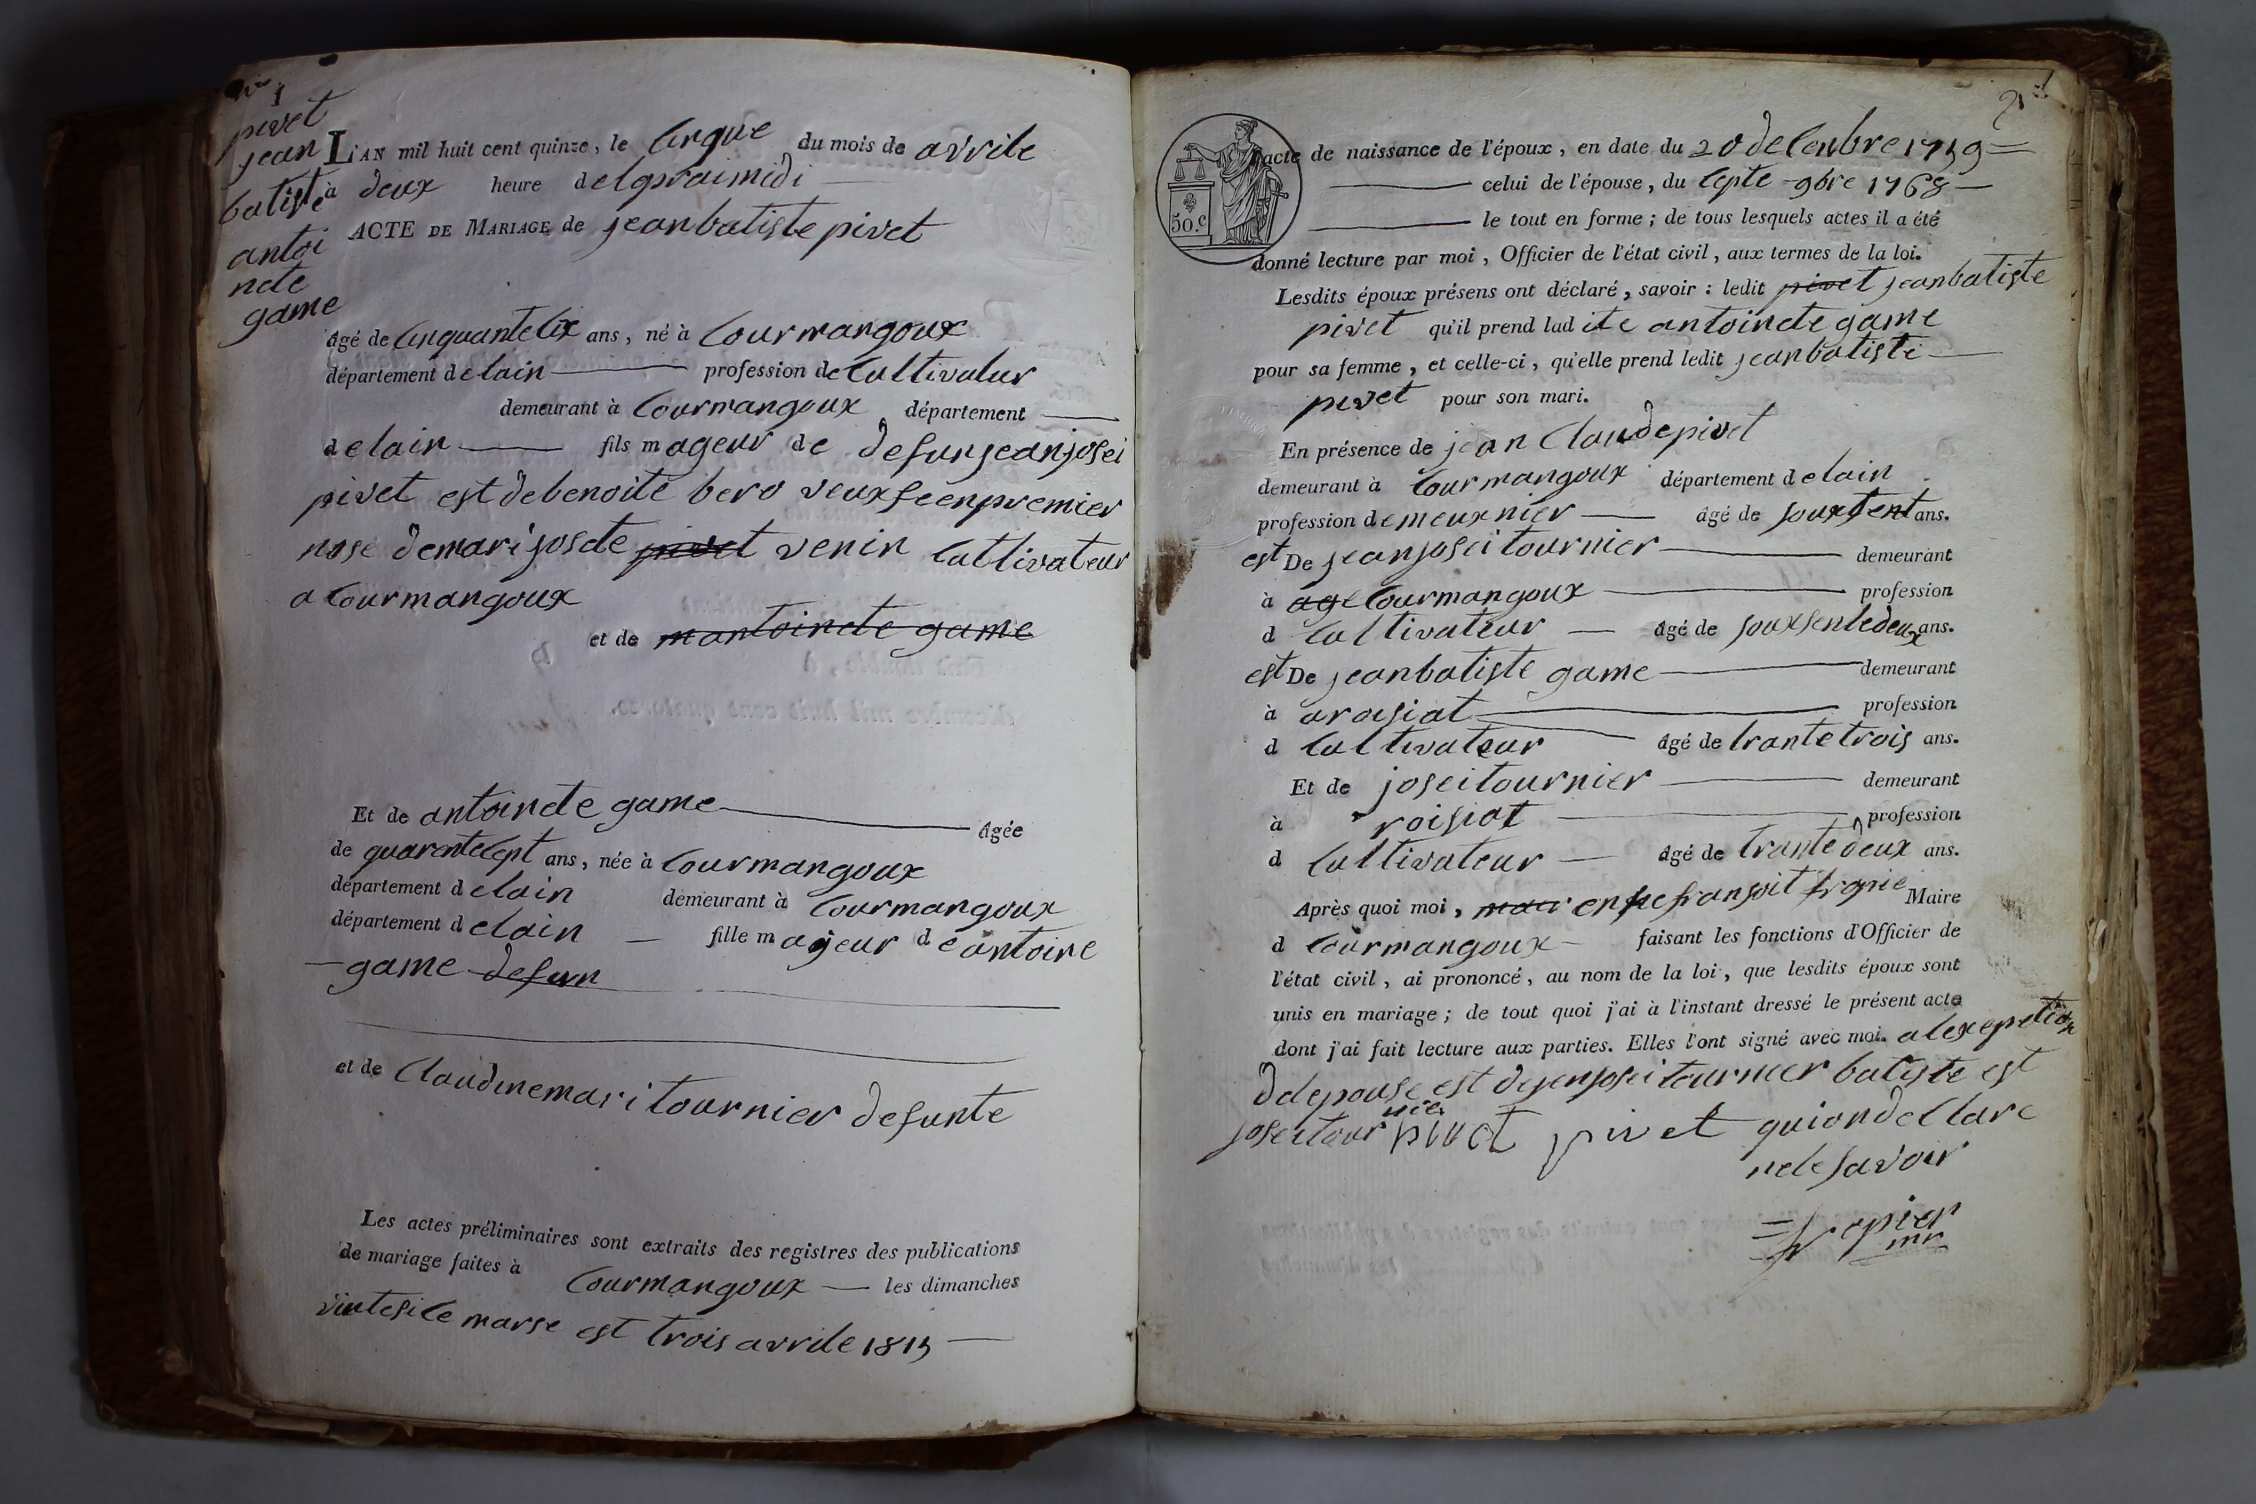 1
pivet
jean
batiste
antoi
nete
game
L'AN mil huit cent quinze, le cinque du mois de avrile
à deux heure delapraimidi
ACTE DE MARIAGE de jeanbatiste pivet
âgé de cinquantecix ans, né à Courmangoux
département delain profession de Cultivatur
demeurant à Courmangoux département
delain fils mageur de defun jean josei
pivet est de benoite bero veux fe en premier
nose de mari josete pivet venin Cultivateur
a Courmangoux
et de mantoinete game
Et de antoinete game âgée
de quarentecept ans, née à Courmangoux
département delain demeurant à Courmangoux
département delain fille majeur de antoine
game defun
et de Claudine mari tournier defunte
Les actes préliminaires sont extraits des registres des publications
de mariage faites à Courmangoux les dimanches
vintesice marse est trois avrile 1815
2
acte de naissance de l'époux, en date du 20 decenbre 1759
celui de l'épouse, du cepte 9bre 1768
50.c
le tout en forme; de tous lesquels actes il a été
donné lecture par moi, Officier de l'état civil, aux termes de la loi.
Lesdits époux présens ont déclaré, savoir: ledit pivet jeanbatiste
pivet qu'il prend ladite antoinete game
pour sa femme, et celle-ci, qu'elle prend ledit jeanbatiste
pivet pour son mari.
En présence de jean Claude pivet
demeurant à Courmangoux département delain
profession demeuxnier âgé de souxsent ans.
est De jean josei tournier demeurant
à age Courmangoux profession
d Cultivateur âgé de souxsentedeux ans.
est De jeanbatiste game demeurant
à arosiat profession
d Cultivateur âgé de trantetrois ans.
Et de josei tournier demeurant
à roisiat profession
d Cultivateur âgé de trantedeux ans.
Après quoi moi, fransoit Maire
d Courmangoux faisant les fonctions d'Officier de
l'état civil, ai prononcé, au nom de la loi, que lesdits époux sont
unis en mariage; de tout quoi j'ai à l'instant dressé le présent acte
dont j'ai fait lecture aux parties. Elles l'ont signé avec moi. alexepetion
delepouse est dejenjosei tournier batiste est
josei tournier pivet pivet quionde Clare
nele savoir
mr